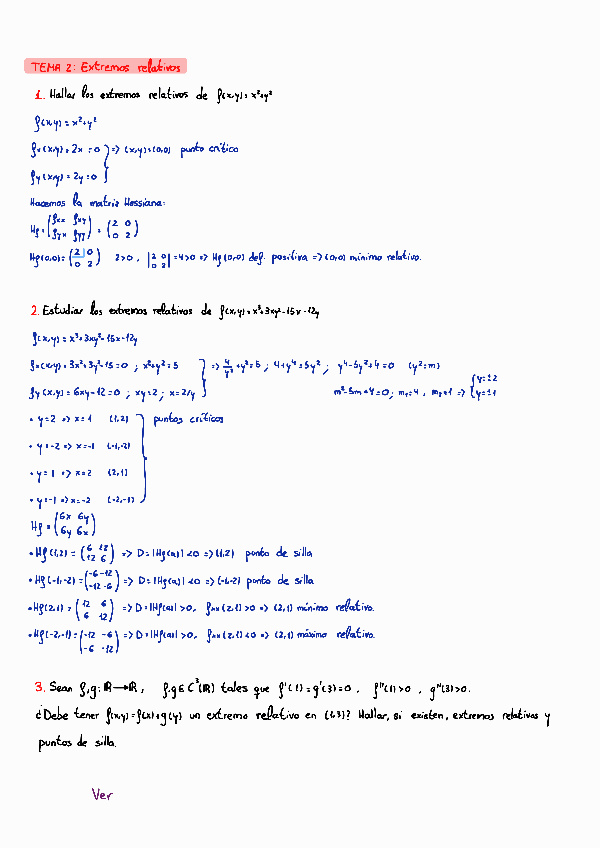 TEMA 2: Extremos relativos
1. Hallar los extremos relativos de f(x,y)=x²+y²
f(x,y)=x²+y²
fx(x,y)=2x=0 } => (x,y)=(0,0) punto crítico
fy(x,y)=2y=0
Hacemos la matriz Hessiana:
Hf=(fxx fxy / fyx fyy) = (2 0 / 0 2)
Hf(0,0)=(2 0 / 0 2) 2>0, |2 0 / 0 2|=4>0 => Hf(0,0) def. positiva => (0,0) mínimo relativo.
2. Estudiar los extremos relativos de f(x,y)=x³+3xy²-15x-12y
f(x,y)=x³+3xy²-15x-12y
fx(x,y)=3x²+3y²-15=0 ; x²+y²=5 } => 4/y²+y²=5 ; 4+y⁴=5y² ; y⁴-5y²+4=0 (y²=m)
fy(x,y)=6xy-12=0 ; xy=2 ; x=2/y m²-5m+4=0 ; m₁=4, m₂=1 => {y=±2 y=±1
• y=2 => x=1 (1,2) } puntos críticos
• y=-2 => x=-1 (-1,-2)
• y=1 => x=2 (2,1)
• y=-1 => x=-2 (-2,-1)
Hf=(6x 6y / 6y 6x)
• Hf(1,2)=(6 12 / 12 6) => D=|Hf(a)|<0 => (1,2) punto de silla
• Hf(-1,-2)=(-6 -12 / -12 -6) => D=|Hf(a)|<0 => (-1,-2) punto de silla
• Hf(2,1)=(12 6 / 6 12) => D=|Hf(a)|>0, fxx(2,1)>0 => (2,1) mínimo relativo.
• Hf(-2,-1)=(-12 -6 / -6 -12) => D=|Hf(a)|>0, fxx(2,1)<0 => (2,1) máximo relativo.
3. Sean f,g: ℝ→ℝ, f,g∈C³(ℝ) tales que f'(1)=g'(3)=0, f''(1)>0, g''(3)>0.
¿Debe tener f(x,y)=f(x)+g(y) un extremo relativo en (1,3)? Hallar, si existen, extremos relativos y
puntos de silla.
Ver